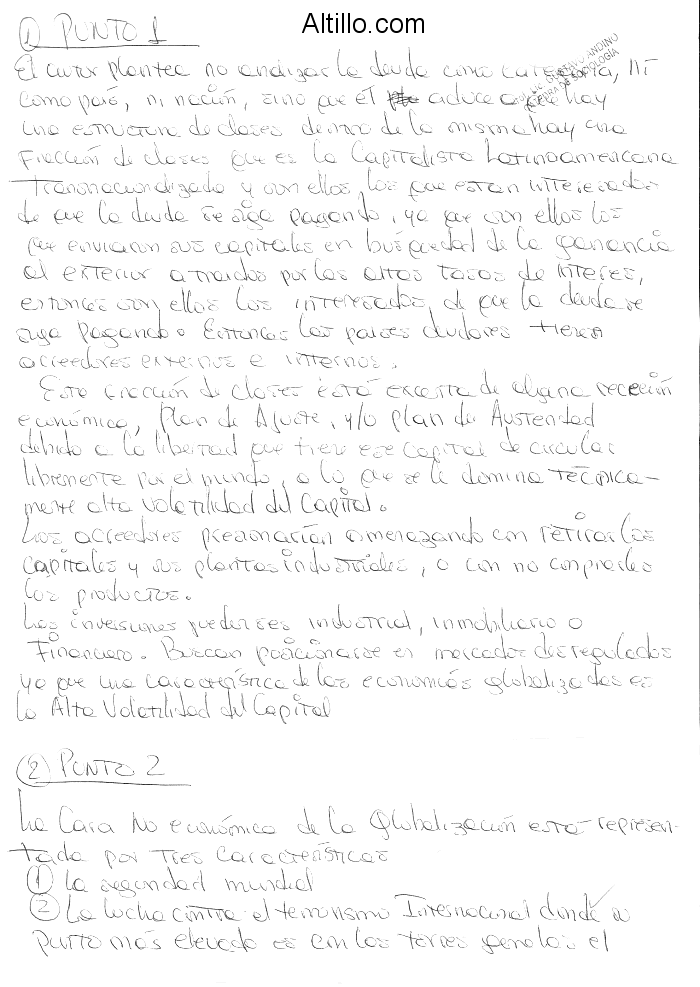 Altillo.com
① PUNTO 1
GUSTAVO ANDINO
CATEDRA DE SOCIOLOGÍA
El autor plantea no analizar la deuda como categoría, ni
como país, ni nación, sino que él aduce a que hay
una estructura de clases dentro de la misma hay una
Fracción de clases que es la Capitalista Latinoamericana
Transnacionalizada y son ellos los que estan interesados
de que la deuda se siga pagando, ya que son ellos los
que enviaron sus capitales en busquedad de la ganancia
al exterior atraidos por las altas tasas de interes,
entonces son ellos los interesados de que la deuda se
siga pagando. Entonces los paises deudores tienen
acreedores externos e internos.
Esta fracción de clases está excenta de alguna receción
económica, Plan de Ajuste, y/o plan de Austeridad
debido a la libertad que tiene ese capital de circular
libremente por el mundo, a lo que se le domina Técnica-
mente alta volatilidad del Capital.
Los acreedores presionarían amenazando con retirar los
capitales y sus plantas industriales, o con no comprarles
los productos.
Las inversiones pueden ser industrial, inmobiliario o
Financiero. Buscan posicionarse en mercados desregulados
ya que una característica de las economías globalizadas es
la Alta Volatilidad del Capital
② PUNTO 2
La Cara No económica de la Globalización está represen-
tada por Tres Características
① La seguridad mundial
② La lucha contra el terrorismo Internacional donde su
punto más elevado es con las torres gemelas el